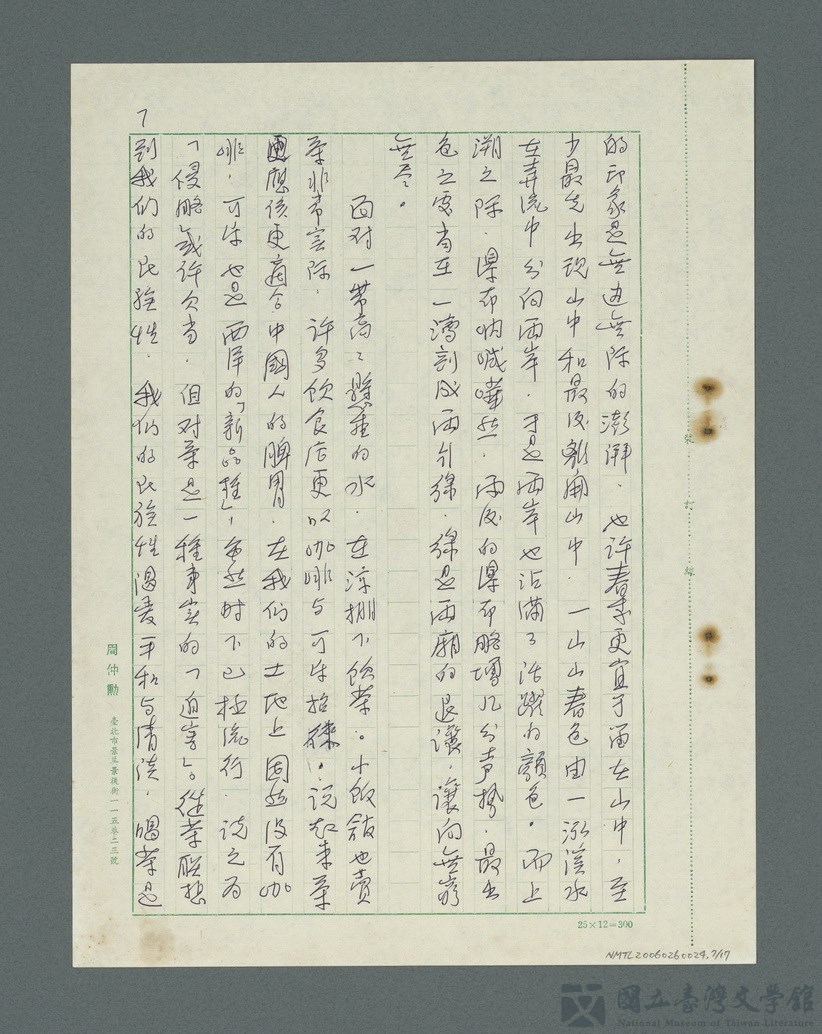 7
的印象是無边無际的澎湃．也許春季更宜于留在山中，至
少最先出現山中和最後離開山中．一山山春色由一泓溪水
在奔流中分向兩岸．于是兩岸也沾滿了活躍的顏色。而上
溯之际．瀑布吶喊嘩然．雨後的瀑布略增几分声勢．最出
色之處当在一瀉割成兩行綠．綠是兩廂的退讓，讓向無窮
無尽。
面对一帶高高懸垂的水．在涼棚下飲茶。小飯館也賣
茶非常实际．許多飲食店更以咖啡与可樂招徠。说起來茶
應该更適合中國人的脾胃．在我们的土地上固然没有咖
啡．可樂也是西洋的「新品種」，虽然时下已極流行．说之为
「侵略」或许欠当．但对茶是一種事实的「迫害」。從茶联想
到我们的民族性．我们的民族性溫柔平和与清淡．喝茶是
裝 訂 線
周仲勳 臺北市景美景後街一一五巷二三號
25×12=300
NMTL20060260029.7/17
國立臺灣文學館
National Museum of Taiwan Literature